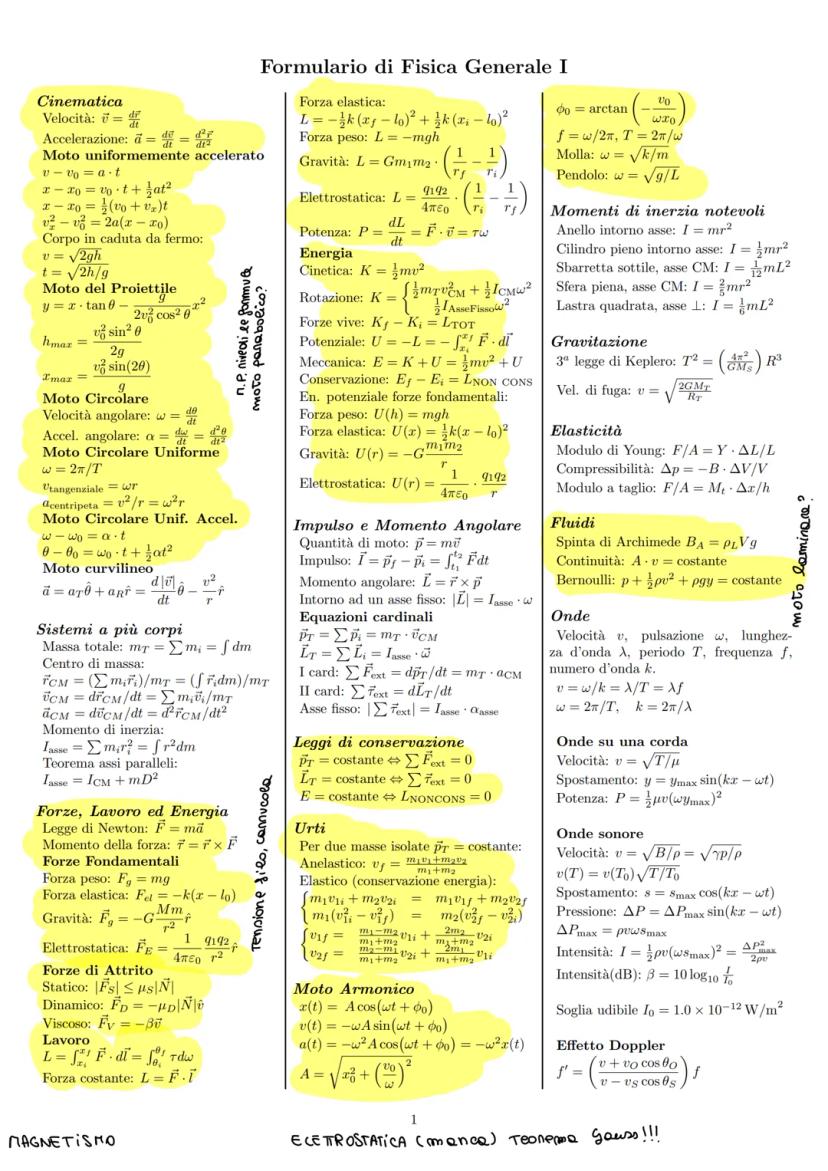 Formulario di Fisica Generale I
Cinematica
Velocità: v⃗ = dr⃗/dt
Accelerazione: a⃗ = dv⃗/dt = d²r⃗/dt²
Moto uniformemente accelerato
v − v₀ = a · t
x − x₀ = v₀ · t + ½at²
x − x₀ = ½(v₀ + vₓ)t
vₓ² − v₀² = 2a(x − x₀)
Corpo in caduta da fermo:
v = √(2gh)
t = √(2h/g)
Moto del Proiettile
y = x · tan θ − g/(2v₀² cos² θ) x²
h_max = v₀² sin² θ / 2g
x_max = v₀² sin(2θ) / g
Moto Circolare
Velocità angolare: ω = dθ/dt
Accel. angolare: α = dω/dt = d²θ/dt²
Moto Circolare Uniforme
ω = 2π/T
v_tangenziale = ωr
a_centripeta = v²/r = ω²r
Moto Circolare Unif. Accel.
ω − ω₀ = α · t
θ − θ₀ = ω₀ · t + ½αt²
Moto curvilineo
a⃗ = a_T θ̂ + a_R r̂ = d|v⃗|/dt θ̂ − v²/r r̂
Sistemi a più corpi
Massa totale: m_T = ∑ m_i = ∫ dm
Centro di massa:
r⃗_CM = (∑ m_i r⃗_i)/m_T = (∫ r⃗_i dm)/m_T
v⃗_CM = dr⃗_CM/dt = ∑ m_i v⃗_i/m_T
a⃗_CM = dv⃗_CM/dt = d²r⃗_CM/dt²
Momento di inerzia:
I_asse = ∑ m_i r_i² = ∫ r² dm
Teorema assi paralleli:
I_asse = I_CM + mD²
Forze, Lavoro ed Energia
Legge di Newton: F⃗ = ma⃗
Momento della forza: τ⃗ = r⃗ × F⃗
Forze Fondamentali
Forza peso: F_g = mg
Forza elastica: F_el = −k(x − l₀)
Gravità: F⃗_g = −G Mm/r² r̂
Elettrostatica: F⃗_E = 1/(4πε₀) q₁q₂/r² r̂
Forze di Attrito
Statico: |F⃗_S| ≤ μ_S|N⃗|
Dinamico: F⃗_D = −μ_D|N⃗|v̂
Viscoso: F⃗_V = −βv⃗
Lavoro
L = ∫_{x_i}^{x_f} F⃗ · dl⃗ = ∫_{θ_i}^{θ_f} τdω
Forza costante: L = F⃗ · l⃗
moto parabolico?
Tensione filo, carrucola
Forza elastica:
L = −½k (x_f − l₀)² + ½k (x_i − l₀)²
Forza peso: L = −mgh
Gravità: L = Gm₁m₂ · (1/r_f − 1/r_i)
Elettrostatica: L = q₁q₂/(4πε₀) · (1/r_i − 1/r_f)
Potenza: P = dL/dt = F⃗ · v⃗ = τω
Energia
Cinetica: K = ½mv²
Rotazione: K = { ½m_T v²_CM + ½I_CM ω²
½I_AsseFisso ω²
Forze vive: K_f − K_i = L_TOT
Potenziale: U = −L = −∫_{x_i}^{x_f} F⃗ · dl⃗
Meccanica: E = K + U = ½mv² + U
Conservazione: E_f − E_i = L_NON CONS
En. potenziale forze fondamentali:
Forza peso: U(h) = mgh
Forza elastica: U(x) = ½k(x − l₀)²
Gravità: U(r) = −G m₁m₂/r
Elettrostatica: U(r) = 1/(4πε₀) · q₁q₂/r
Impulso e Momento Angolare
Quantità di moto: p⃗ = mv⃗
Impulso: I⃗ = p⃗_f − p⃗_i = ∫_{t₁}^{t₂} F⃗dt
Momento angolare: L⃗ = r⃗ × p⃗
Intorno ad un asse fisso: |L⃗| = I_asse · ω
Equazioni cardinali
p⃗_T = ∑ p⃗_i = m_T · v⃗_CM
L⃗_T = ∑ L⃗_i = I_asse · ω⃗
I card: ∑ F⃗_ext = dp⃗_T/dt = m_T · a_CM
II card: ∑ τ⃗_ext = dL⃗_T/dt
Asse fisso: |∑ τ⃗_ext| = I_asse · α_asse
Leggi di conservazione
p⃗_T = costante ⇔ ∑ F⃗_ext = 0
L⃗_T = costante ⇔ ∑ τ⃗_ext = 0
E = costante ⇔ L_NONCONS = 0
Urti
Per due masse isolate p⃗_T = costante:
Anelastico: v_f = (m₁v₁+m₂v₂)/(m₁+m₂)
Elastico (conservazione energia):
{ m₁v₁i + m₂v₂i = m₁v₁f + m₂v₂f
m₁(v²₁i − v²₁f) = m₂(v²₂f − v²₂i)
{ v₁f = (m₁−m₂)/(m₁+m₂) v₁i + 2m₂/(m₁+m₂) v₂i
v₂f = (m₂−m₁)/(m₁+m₂) v₂i + 2m₁/(m₁+m₂) v₁i
Moto Armonico
x(t) = A cos(ωt + φ₀)
v(t) = −ωA sin(ωt + φ₀)
a(t) = −ω²A cos(ωt + φ₀) = −ω²x(t)
A = √(x₀² + (v₀/ω)²)
φ₀ = arctan (−v₀/(ωx₀))
f = ω/2π, T = 2π/ω
Molla: ω = √(k/m)
Pendolo: ω = √(g/L)
Momenti di inerzia notevoli
Anello intorno asse: I = mr²
Cilindro pieno intorno asse: I = ½mr²
Sbarretta sottile, asse CM: I = 1/12 mL²
Sfera piena, asse CM: I = 2/5 mr²
Lastra quadrata, asse ⊥: I = 1/6 mL²
Gravitazione
3ª legge di Keplero: T² = (4π²/GM_S) R³
Vel. di fuga: v = √(2GM_T/R_T)
Elasticità
Modulo di Young: F/A = Y · ΔL/L
Compressibilità: Δp = −B · ΔV/V
Modulo a taglio: F/A = M_t · Δx/h
Fluidi
Spinta di Archimede B_A = ρ_L V g
Continuità: A · v = costante
Bernoulli: p + ½ρv² + ρgy = costante
moto laminare?
Onde
Velocità v, pulsazione ω, lunghez-
za d'onda λ, periodo T, frequenza f,
numero d'onda k.
v = ω/k = λ/T = λf
ω = 2π/T, k = 2π/λ
Onde su una corda
Velocità: v = √(T/μ)
Spostamento: y = y_max sin(kx − ωt)
Potenza: P = ½μv(ωy_max)²
Onde sonore
Velocità: v = √(B/ρ) = √(γp/ρ)
v(T) = v(T₀)√(T/T₀)
Spostamento: s = s_max cos(kx − ωt)
Pressione: ΔP = ΔP_max sin(kx − ωt)
ΔP_max = ρvωs_max
Intensità: I = ½ρv(ωs_max)² = ΔP²_max/2ρv
Intensità(dB): β = 10 log₁₀ I/I₀
Soglia udibile I₀ = 1.0 × 10⁻¹² W/m²
Effetto Doppler
f′ = ((v + v_O cos θ_O)/(v − v_S cos θ_S)) f
1
MAGNETISMO
ELETTROSTATICA (manca) Teorema Gauss!!!